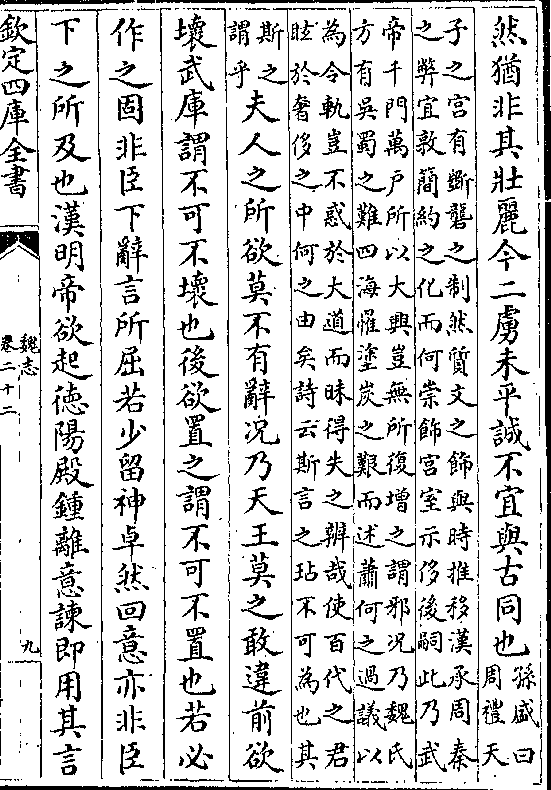 然猶非其壯麗今二虜未平誠不宜與古同也孫盛曰
周禮天
子之宮有斷礱之制然質文之飾與時推移漢承周秦
之弊宜敦簡約之化而何崇飾宮室示侈後嗣此乃武
帝千門萬户所以大興豈無所復增之謂邪况乃魏氏
方有吳蜀之難四海罹塗炭之艱而述蕭何之過議以
為令軌豈不惑於大道而昧得失之辨哉使百代之君
眩於奢侈之中何之由矣詩云斯言之玷不可為也其
斯之
謂乎夫人之所欲莫不有辭况乃天王莫之敢違前欲
壞武庫謂不可不壞也後欲置之謂不可不置也若必
作之固非臣下辭言所屈若少留神卓然回意亦非臣
下之所及也漢明帝欲起徳陽殿鍾離意諫即用其言
欽定四庫全書
魏志
卷二十二
九